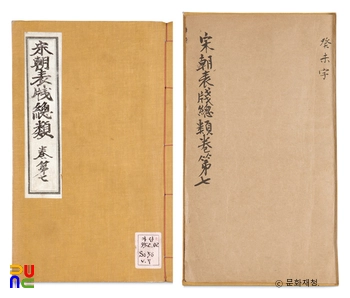 宋朝表牋總類 卷第七
癸未字
宋朝表牋總類卷第七
© 문화재청